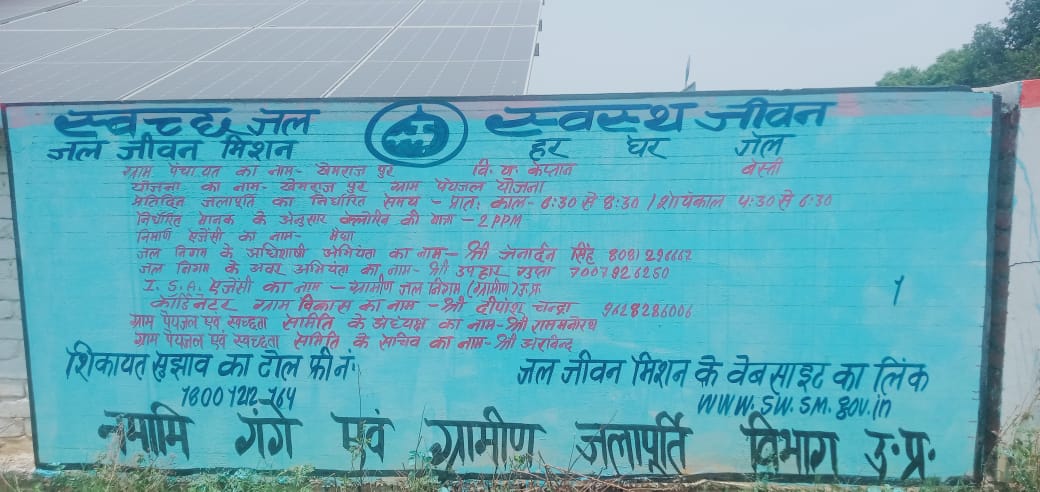 स्वच्छ जल स्वस्थ जीवन
जल जीवन मिशन हर घर जल
ग्राम पंचायत का नाम- खेमराज पुर वि. ख. कप्तान बस्ती
योजना का नाम- खेमराज पुर ग्राम पेयजल योजना
प्रतिदिन जलापूर्ति का निर्धारित समय - प्रात: काल- 6:30 से 8:30 / शायंकाल 4:30 से 6:30
निर्धारित मानक के अनुसार क्लोरिन की मात्रा - 2 PPM
निर्माण ऐजेंसी का नाम- मेघा
जल निगम के अधिशाषी अभियंता का नाम - श्री जनार्दन सिंह
जल निगम के अवर अभियंता का नाम- श्री उपहार गुप्ता 7007926250
I. S.A. ऐजेंसी का नाम - ग्रामीण जल निगम (ग्रामीण) उ.प्र.
कॉर्डिनेटर ग्राम विकास का नाम - श्री दीपांश चन्द्रा 9628286006
ग्राम पेयजल एवं स्वच्छता समिति के अध्यक्ष का नाम- श्री राममनोरथ
ग्राम पेयजल एवं स्वच्छता समिति के सचिव का नाम- श्री अरविन्द
शिकायत सुझाव का टोल फ्री नं: जल जीवन मिशन के वेबसाइट का लिंक
1800 1212 164 WWW.SW.SM.gov.in
नमामि गंगे एवं ग्रामीण जलापूर्ति विभाग उ.प्र.